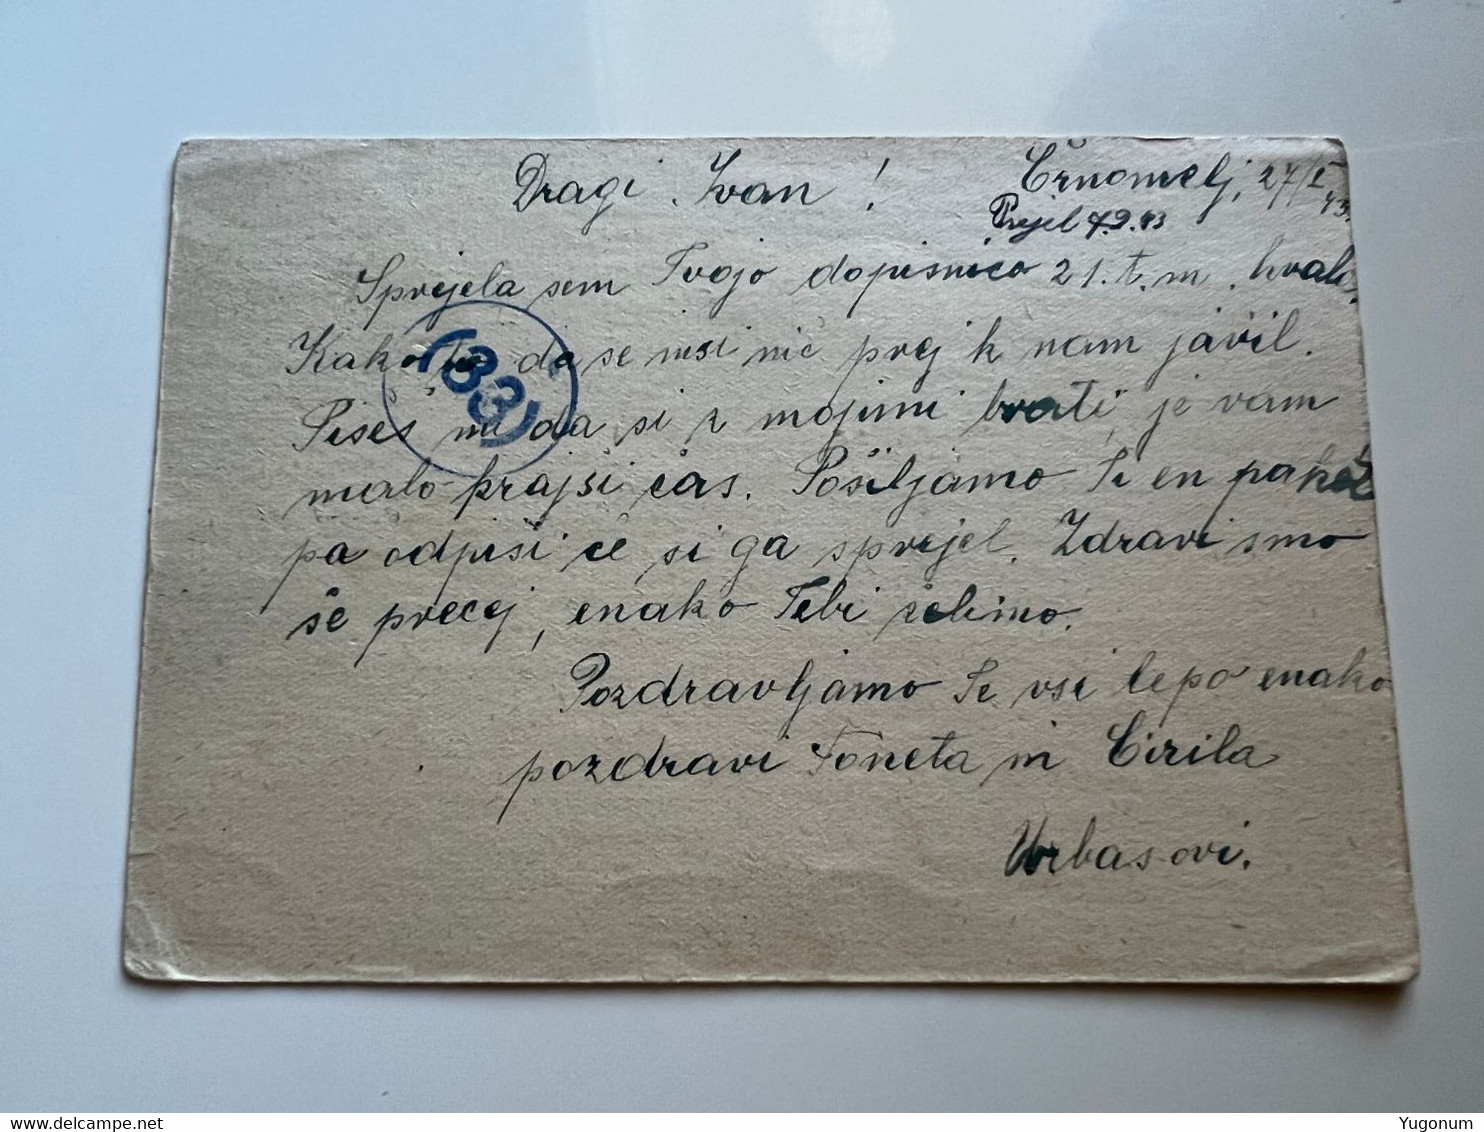 Dragi Ivan!
Črnomelj, 27/I 43.
Prejel 7.2.43
Sprejela sem Tvojo dopisnico 21.t.m. hvala.
Kako to da se nisi nič prej k nam javil.
(33)
Pišeš mi da si z mojimi brati, je vam
malo krajši čas. Pošiljamo Ti en paket
pa odpiši če si ga sprejel. Zdravi smo
še precej, enako Tebi želimo.
Pozdravljamo Te vsi lepo enako
pozdravi Toneta in Cirila
Urbasovi.
Yugonum